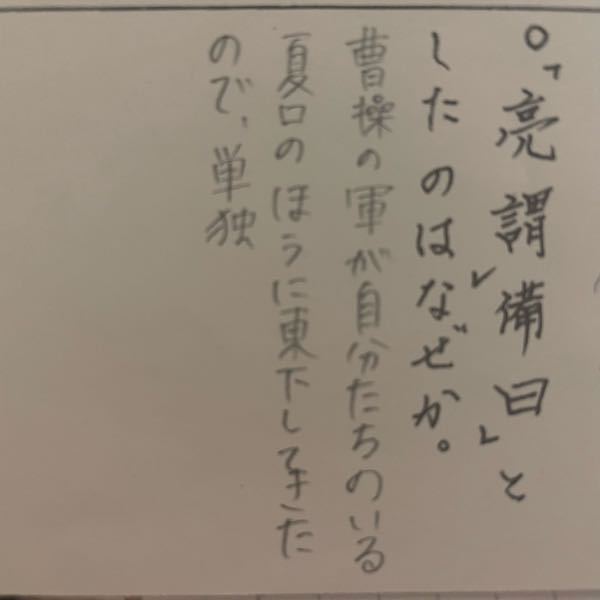 ○「亮謂備曰」と
したのはなぜか。
曹操の軍が自分たちのいる
夏口のほうに東下してきた
ので、単独